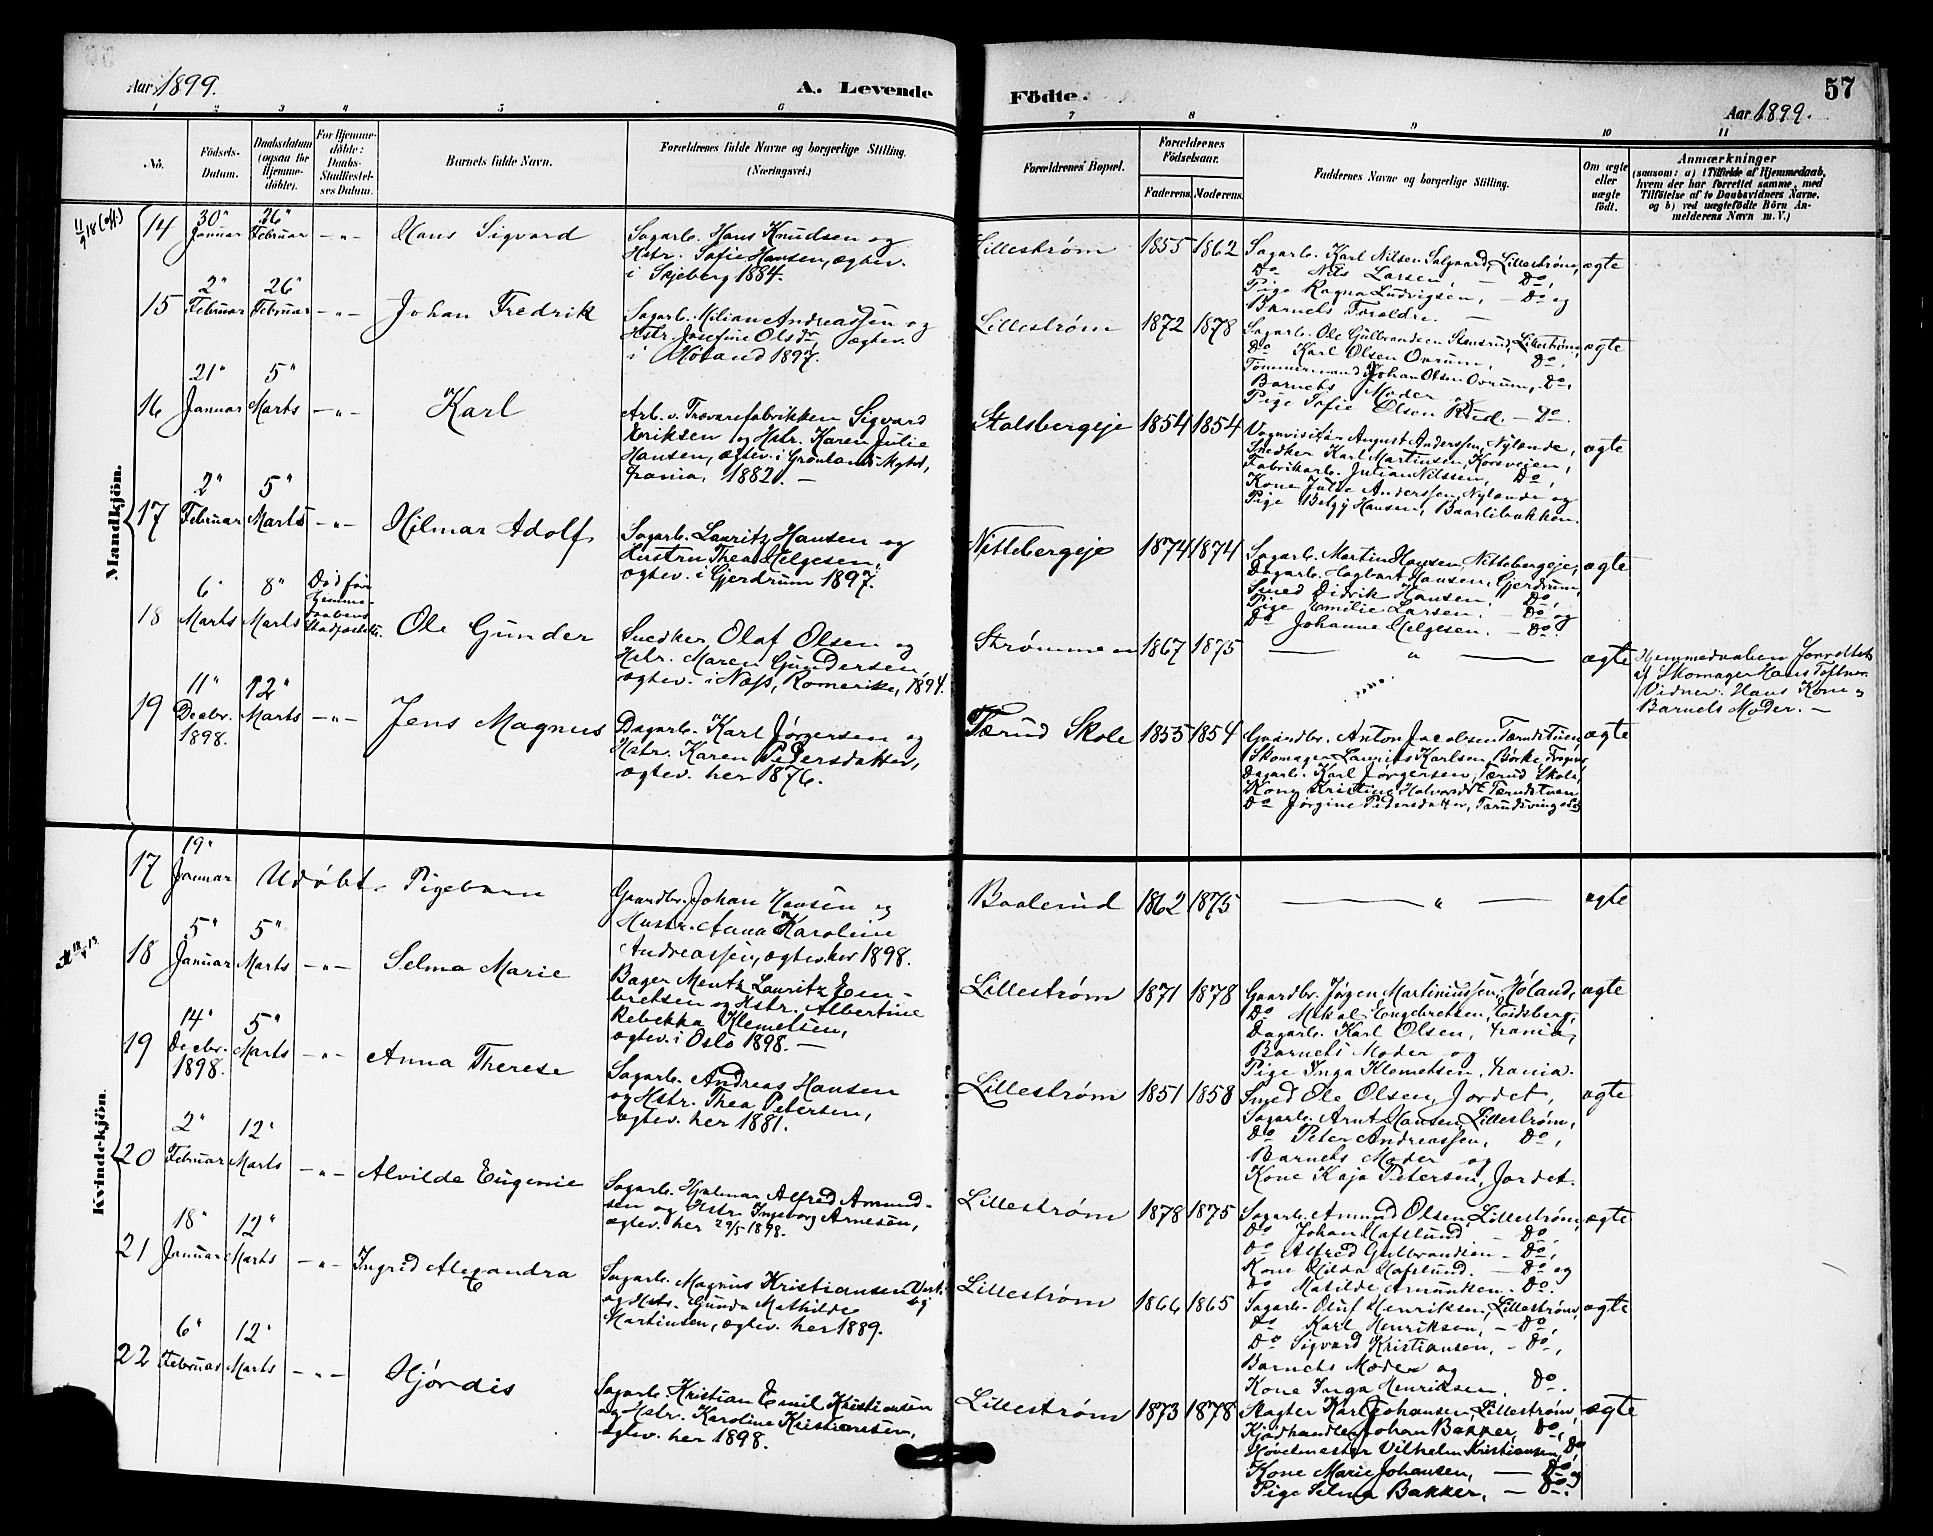 Aar 1899.
A. Levende
Födte.
57
Aar 1899.
1 2 3 4 5 6 7 8 9 10 11
No.
Födsels-Datum.
Daabsdatum (ogsaa for Hjemme-döbte).
For Hjemme-döbte: Daabs-Stadfæstel-ses Datum.
Barnets fulde Navn.
Forældrenes fulde Navne og borgerlige Stilling. (Næringsvei.)
Forældrenes Bopæl.
Forældrenes Födselsaar.
Faderens. Moderens.
Faddernes Navne og borgerlige Stilling.
Om ægte eller uægte født.
Anmærkninger
(saasom: a) i Tilfælde af Hjemmedaab, hvem der har forrettet samme, med Tilføielse af to Daabsvidners Navne, og b) ved uægtefödte Börn An-melderens Navn m. V.)
Mandkjön.
14 30" Januar 26" Februar — " — Hans Sigvard
Sagarb. Hans Knudsen og
Hstr. Sofie Hansen, ægtev.
i Skjeberg 1884.
Lillestrøm 1855 1862
Sagarb. Karl Nilsen Salgaard, Lillestrøm,
Do Nils Larsen, — Do,
Pige Ragna Ludvigsen, — Do og
Barnets Forældre. —
ægte
15 2" Februar 26" Februar — " — Johan Fredrik
Sagarb. Milian Andreassen og
Hstr. Josefine Olsdr, ægtev.
i Høland 1897.
Lillestrøm 1872 1878
Sagarb. Ole Gulbrandsen Stensrud, Lillestrøm,
Do Karl Olsen Ovrum, Do,
Tømmermand Johan Olsen Ovrum, Do,
Barnets Moder og
Pige Sofie Olsen Rud. — Do.
ægte
16 21" Januar 5" Marts — " — Karl
Arb. v. Trævarefabrikken Sigvard
Eriksen og Hstr. Karen Julie
Hansen, ægtev. i Grønlands Mghd,
Xrania, 1882. —
Stalsbergeje 1854 1854
Vognvisitør August Anderssen, Nylande,
Snedker Karl Martinsen, Korsvejen,
Fabrikarb. Julian Nilssen, Do,
Kone Julie Anderssen, Nylande og
Pige Betzy Hansen, Baarlibakken.
ægte
17 2" Februar 5" Marts — " — Hilmar Adolf
Sagarb. Lauritz Hansen og
Hustru Thea Helgesen,
ægtev. i Gjerdrum 1897.
Nittebergeje 1874 1874
Sagarb. Martin Hansen, Nittebergeje,
Dagarb. Hagbart Hansen, Gjerdrum,
Smed Didrik Hansen, Do,
Pige Emilie Larsen. — Do og
Do Johanne Helgesen. — Do
ægte
18 6" Marts 8" Marts Død før Hjemme-daabens Stadfæstelse. Ole Gunder
Snedker Olaf Olsen og
Hstr. Maren Gundersen,
ægtev. i Næs, Romerike, 1894.
Strømmen 1867 1875
— " —
ægte
Hjemmedaaben forrettet
af Skomager Hans Toftner.
Vidner: Hans Kone og
Barnets Moder. —
19 11" Decbr. 1898. 12" Marts — " — Jens Magnus
Dagarb. Karl Jørgersen og
Hstr. Karen Pedersdatter,
ægtev. her 1876.
Tærud Skole 1855 1854
Gaardbr. Anton Jacobsen Tærudstuen,
Skomager Laurits Karlsen, Børke, Frogner,
Dagarb. Karl Jørgersen, Tærud Skole,
Kone Kristine Halvorsdt Tærudstuen
Do Jørgine Pedersdatter,
ægte
Kvindekjön.
17 19" Januar Udøbt Pigebarn
Gaardbr. Johan Hansen og
Hustr. Anna Karoline
Andreassen, ægtev. her 1898.
Baalerud 1862 1875
— " —
ægte
18 5" Januar 5" Marts — " — Selma Marie
Bager Mentz Lauritz Em-
bretsen og Hstr. Albertine
Rebekka Klemetsen,
ægtev. i Oslo 1898. —
Lillestrøm 1871 1878
Gaardbr. Jørgen Martiniussen, Høland,
Do Mikal Engebretsen, Eidsberg,
Dagarb. Karl Olsen, Xrania,
Barnets Moder og
Pige Inga Klemetsen, Xrania.
ægte
19 14" Decbr. 1898. 5" Marts — " — Anna Therese
Sagarb. Andreas Hansen
og Hstr. Thea Petersen,
ægtev. her 1881.
Lillestrøm 1851 1858
Smed Ole Olsen, Jordet,
Sagarb. Arnt Hansen, Lillestrøm,
Do Peter Andreassen, Do,
Barnets Moder og
Kone Kaja Petersen, Jordet.
ægte
20 2" Februar 12" Marts — " — Alvilde Eugenie
Sagarb. Hjalmar Alfred Amund-
sen og Hstr. Ingeborg Arnesen,
ægtev. her 29/5 1898.
Lillestrøm 1878 1875
Sagarb. Amund Olsen, Lillestrøm,
Do Johan Hafslund — Do,
Do Alfred Gulbrandsen — Do,
Kone Hilda Hafslund. — Do og
Do Matilde Amundsen. — Do.
ægte
21 18" Januar 12" Marts — " — Ingrid Alexandra
Sagarb. Magnus Kristiansen
og Hstr. Gunda Mathilde
Martinsen, ægtev. her 1889.
Lillestrøm 1866 1865
Sagarb. Oluf Henriksen, Lillestrøm,
Do Karl Henriksen, — Do,
Do Sigvard Kristiansen, — Do,
Barnets Moder og
Kone Inga Henriksen. Do.
ægte
22 6" Februar 12" Marts — " — Hjørdis
Sagarb. Kristian Emil Kristiansen
og Hstr. Karoline Kristiansen,
ægtev. her 1898.
Lillestrøm 1873 1878
Slagter Karl Johansen, Lillestrøm,
Kjødhandler Johan Bakker, Do,
Høvelmester Vilhelm Kristiansen, Do
Kone Marie Johansen, — Do og
Pige Selma Bakker, — Do.
ægte